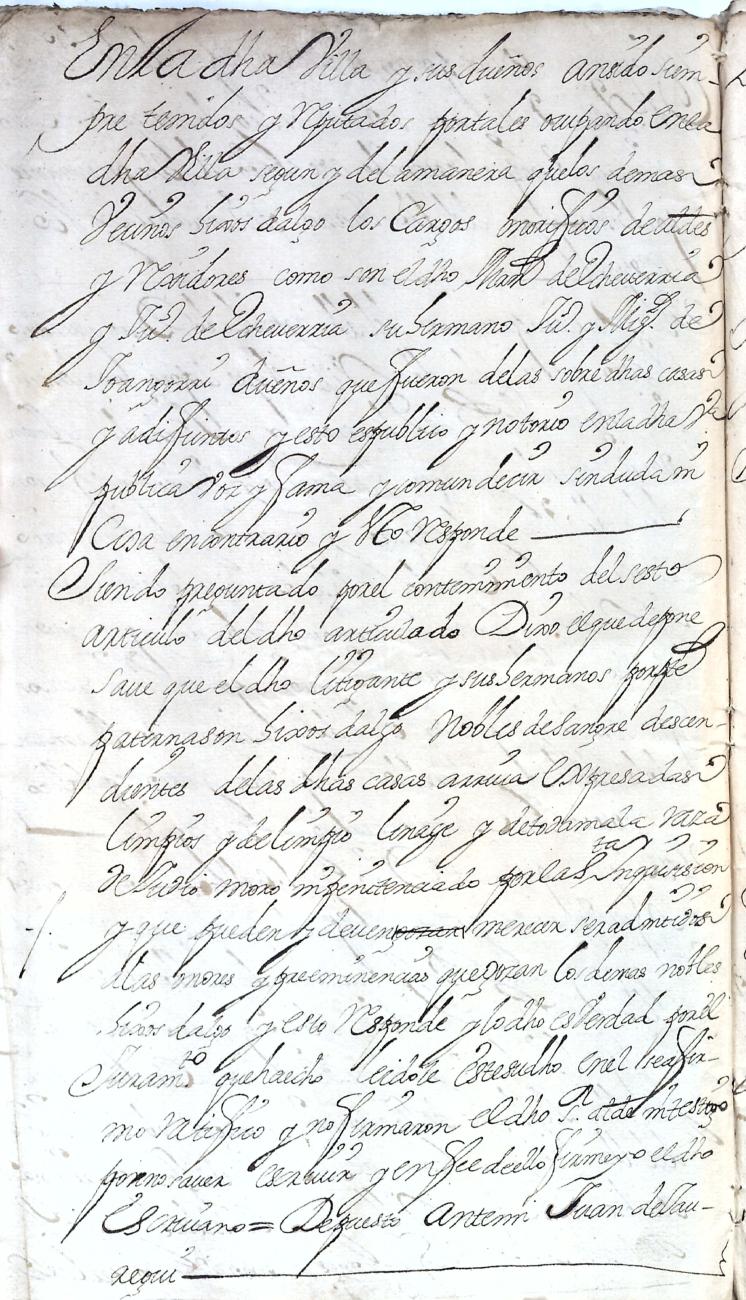 En la dha Villa y sus dueños an sido siem-
pre tenidos y Reputados por tales ocupando en la
dha Villa segun y de la manera que los demas
Vecinos hixos dalgo los Cargos onorificos de alldes
y Rexidores como son el dho Mnn de Echeverria
y Ju.º de Echeverria su hermano Ju.º y Mig.l de
Joangorri dueños que fueron de las sobre dhas casas
ya difuntos y esto es publico y notorio en la dha V.a
publica voz y fama y comun decir sin duda ni
Cosa en contrario y esto Responde
Siendo preguntado por el contenimiento del sesto
articulo del dho articulado Dixo el que depone
save que el dho litigante y sus hermanos por pte
paterna son hixos dalgo Nobles de Sangre descen-
dientes de las dhas casas arriva Expresadas
limpios y de limpio linage y de toda mala raza
de Judio moro ni penitenciado por la S.ta Inquisicion
y que pueden y deven gozar merecer ser admitidos
a las onores y preeminencias que gozan los demas nobles
hixos dalgo y esto Responde y lo dho es Verdad por el
Juram.to que ha echo leidole este su dho en el se afir-
mo Ratifico y no firmaron el dho S.r allde ni testigo
por no saver escrivir y en fee de ello firme yo el dho
Escrivano = Depuesto Ante mi Juan de Jau-
regui